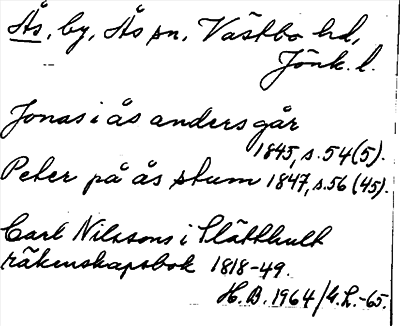 Ås, by, Ås sn, Västbo hd,
Jönk. l.
Jonas i ås anders går
1845, s. 54 (5).
Peter på ås stum 1847, s. 56 (45).
Carl Nilssons i Slätthult
räkenskapsbok 1818-49.
H. B. 1964/G. L.-65.